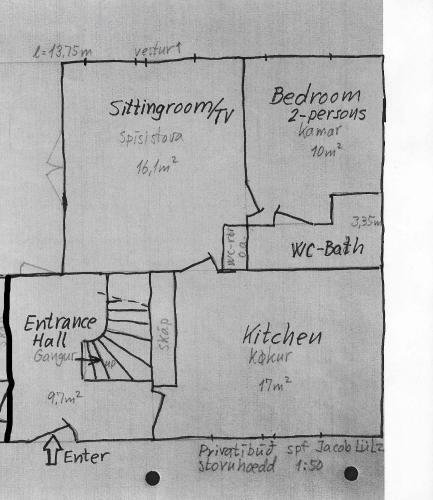 l=13,75m vestur↑
Sittingroom/TV
Spísistova
16,1m²
Bedroom
2-persons
Kamar
10m²
3,35m
WC-rør
o.a.
WC-Bath
Entrance
Hall
Gangur
up
9,7m²
Skáp
Kitchen
Køkur
17m²
Enter
Privatíbúð spf Jacob Lütz
Stovuhædd 1:50